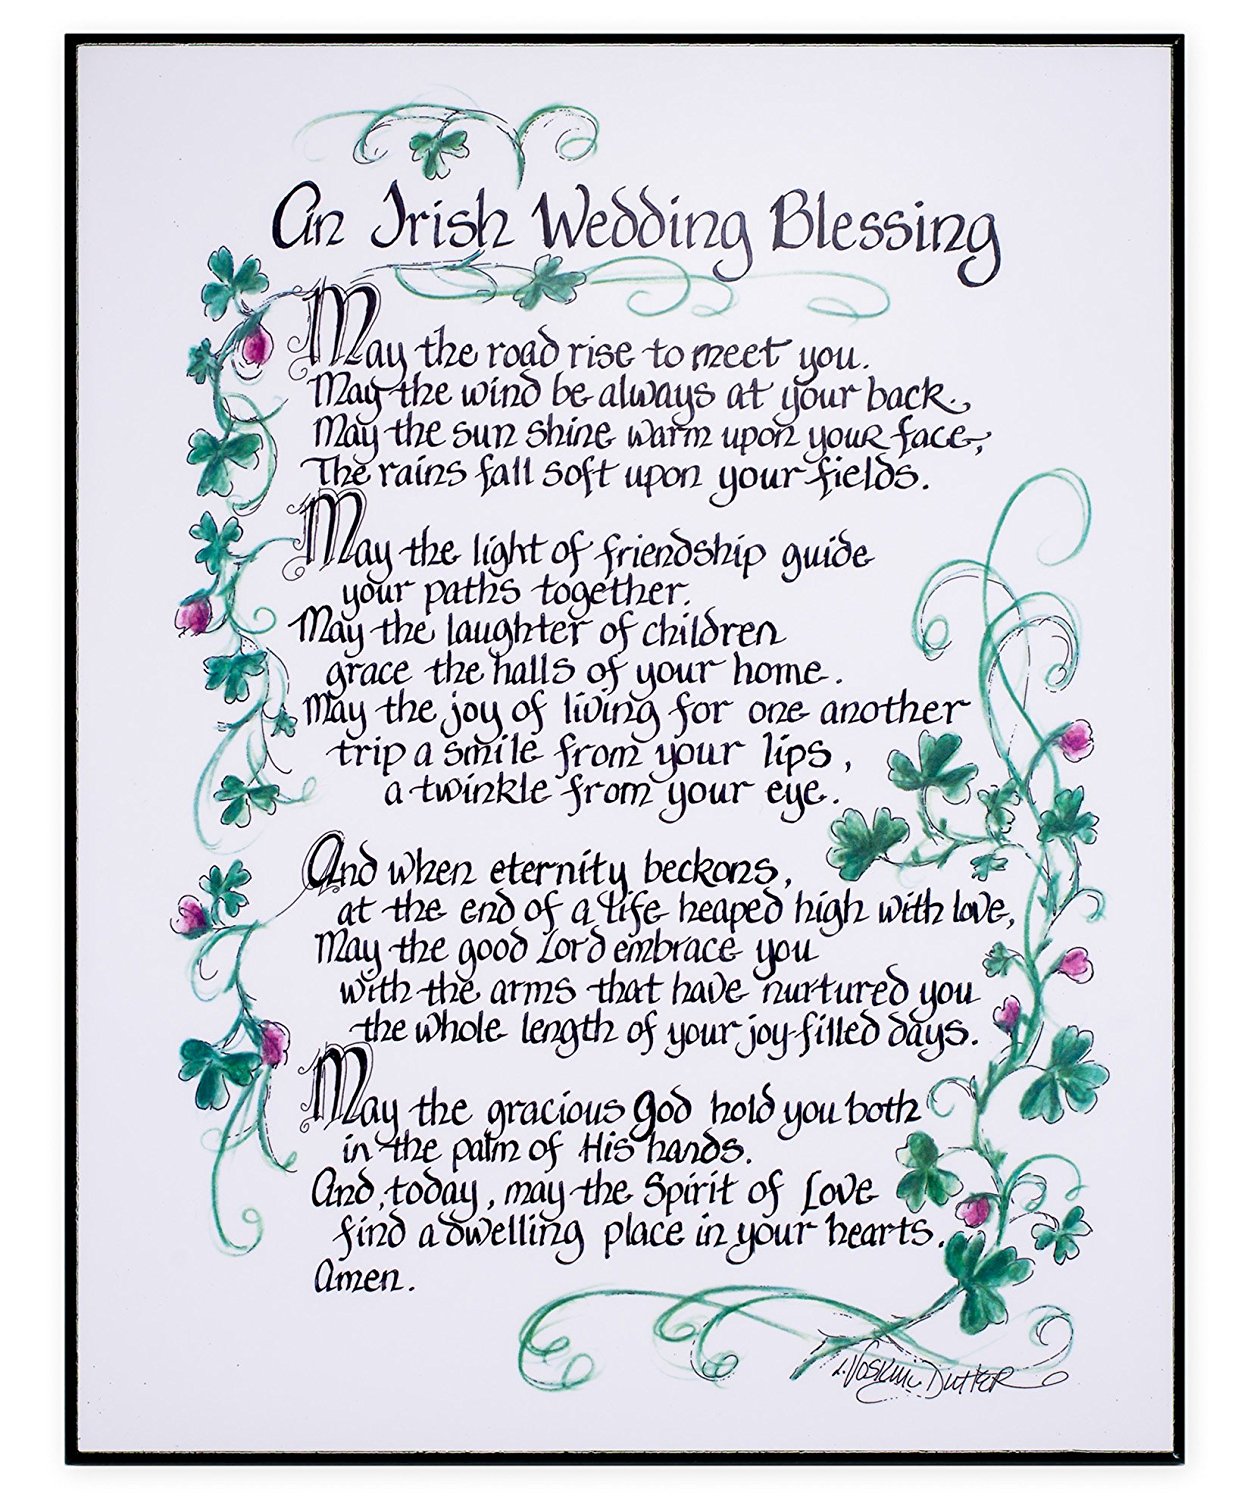 An Irish Wedding Blessing
May the road rise to meet you.
May the wind be always at your back,
May the sun shine warm upon your face,
The rains fall soft upon your fields.
May the light of friendship guide
your paths together.
May the laughter of children
grace the halls of your home.
May the joy of living for one another
trip a smile from your lips,
a twinkle from your eye.
And when eternity beckons,
at the end of a life heaped high with love,
May the good Lord embrace you
with the arms that have nurtured you
the whole length of your joy-filled days.
May the gracious God hold you both
in the palm of His hands.
And, today, may the Spirit of Love
find a dwelling place in your hearts.
Amen.